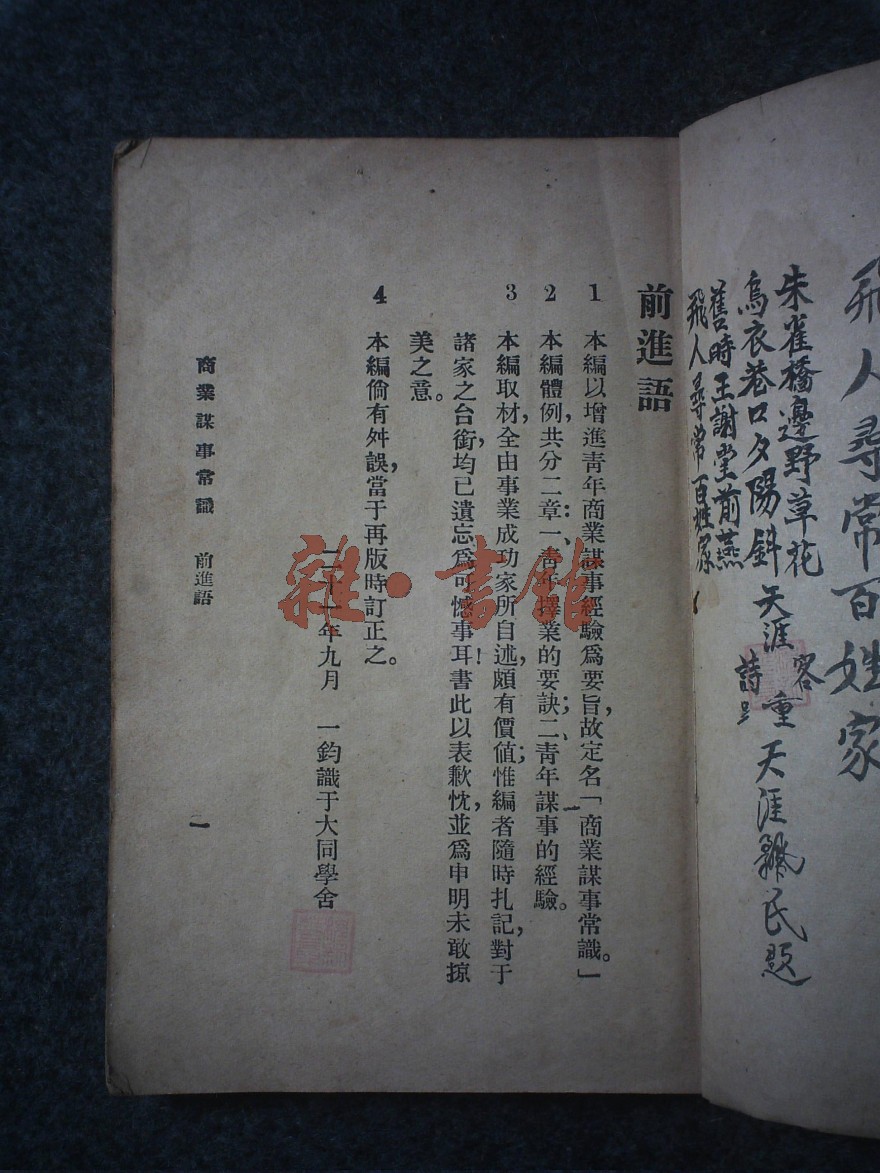 飛人尋常百姓家
朱雀橋邊野草花
烏衣巷口夕陽斜
舊時王謝堂前燕
飛人尋常百姓家
天涯客重
詩
天涯飄民題
前進語
1 本編以增進青年商業謀事經驗爲要旨,故定名「商業謀事常識。」
2 本編體例,共分二章:一、青年擇業的要訣;二、青年謀事的經驗。
3 本編取材,全由事業成功家所自述,頗有價値;惟編者隨時扎記,對于
諸家之台銜,均已遺忘爲可憾事耳!書此以表歉忱,並爲申明未敢掠
美之意。
4 本編倘有舛誤,當于再版時訂正之。
二十一年九月 一鈞識于大同學舍
商業謀事常識 前進語
一
雜·書館